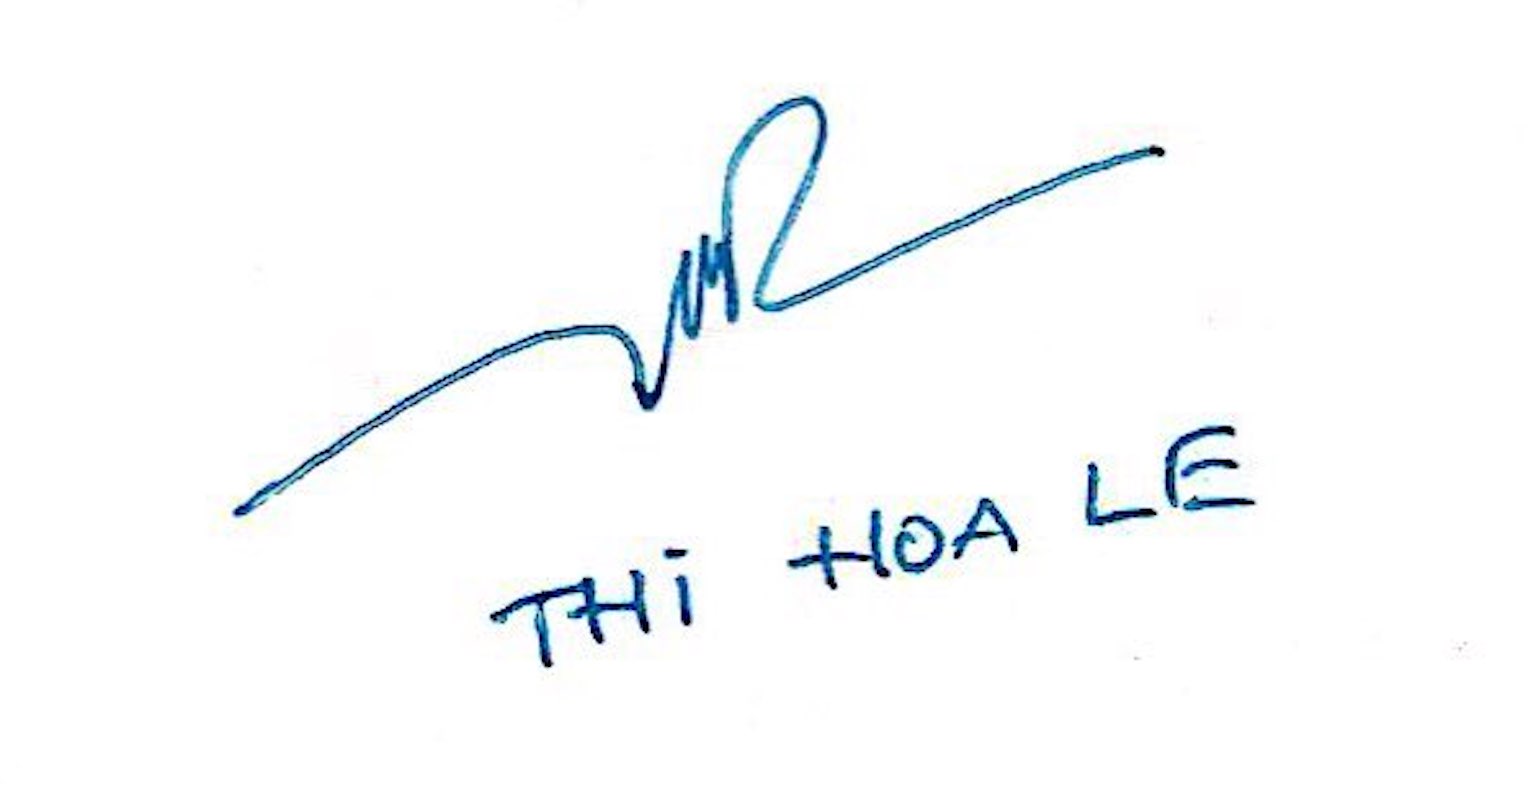 THi HOA LE